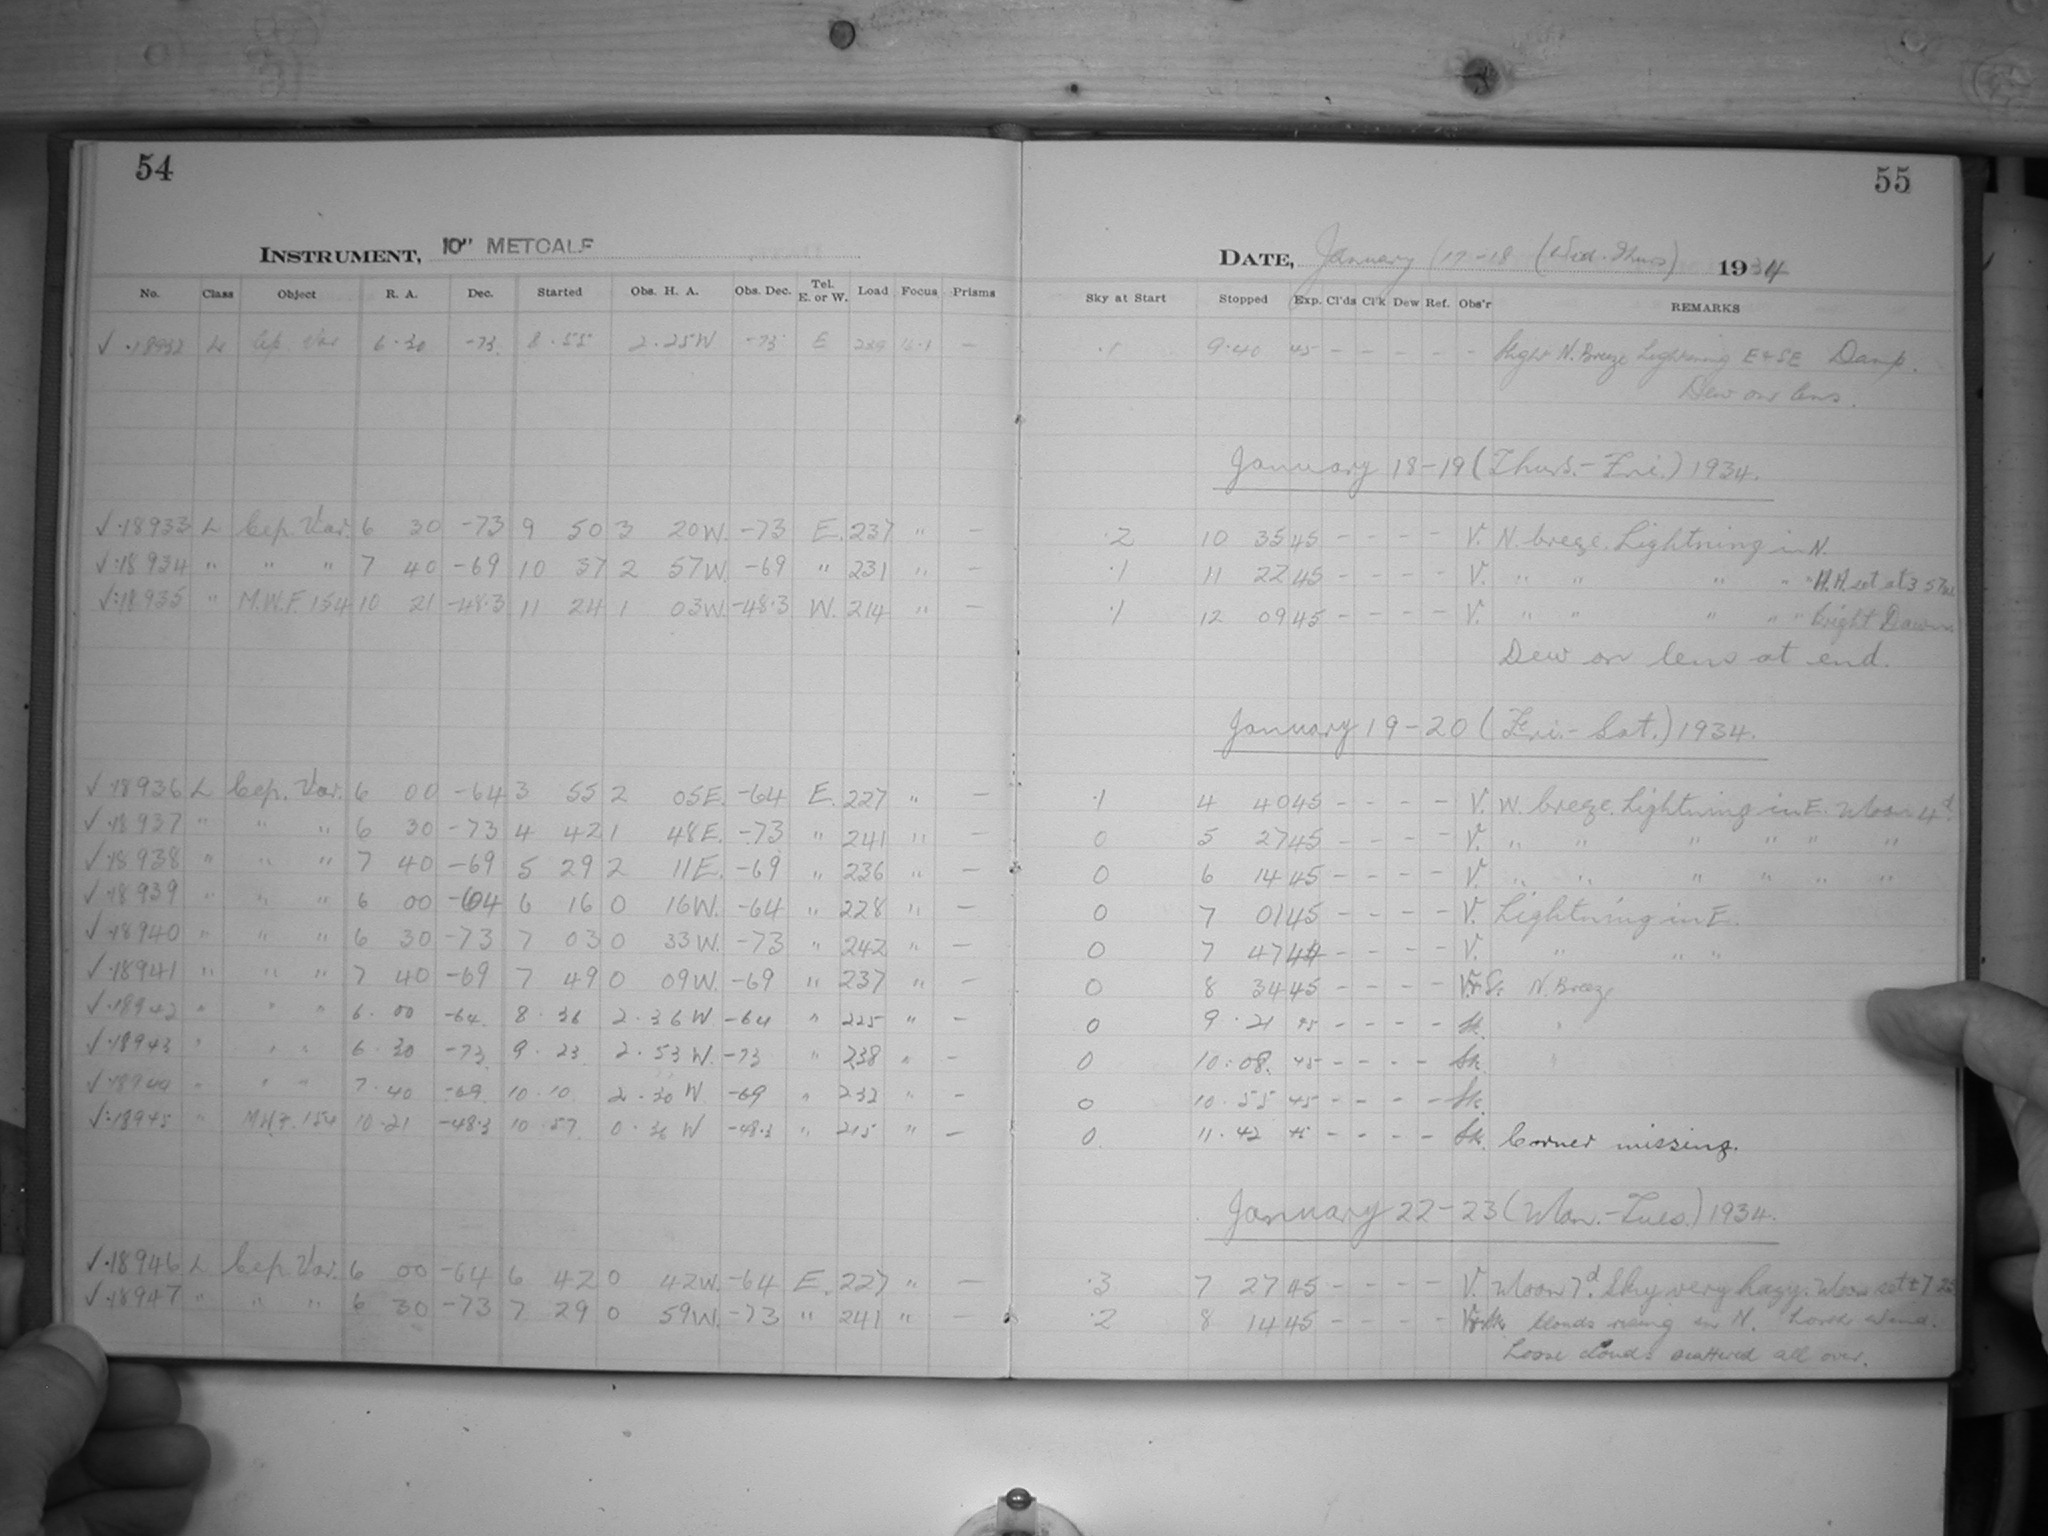 54
INSTRUMENT, 10" METCALF
No. Class Object R. A. Dec. Started Obs. H. A. Obs. Dec. Tel. E. or W. Load Focus Prisms
√ ·18932 L Cep. Var 6·30 -73 8·55 2·25W -73 E 239 —
√ ·18933 L Cep. Var. 6 30 -73 9 50 3 20W. -73 E. 237 " —
√ ·18934 " " " 7 40 -69 10 37 2 57W. -69 " 231 " —
√ ·18935 " M.W.F. 154 10 21 -48·3 11 24 1 03W. -48·3 W. 214 " —
√ ·18936 L Cep. Var. 6 00 -64 3 55 2 05E. -64 E. 227 " —
√ ·18937 " " " 6 30 -73 4 42 1 48E. -73 " 241 " —
√ ·18938 " " " 7 40 -69 5 29 2 11E. -69 " 236 " —
√ ·18939 " " " 6 00 -64 6 16 0 16W. -64 " 228 " —
√ ·18940 " " " 6 30 -73 7 03 0 33W. -73 " 242 " —
√ ·18941 " " " 7 40 -69 7 49 0 09W. -69 " 237 " —
√ ·18942 " " " 6·00 -64 8·36 2·36W -64 " 225 " —
√ ·18943 " " " 6·30 -73 9·23 2·53W. -73 " 238 " —
√ ·18944 " " " 7·40 -69 10·10 2·30W -69 " 232 " —
√ ·18945 " M.W.F. 154 10·21 -48·3 10·57 0·36W -48·3 " 215 " —
√ ·18946 L Cep. Var. 6 00 -64 6 42 0 42W. -64 E. 227 " —
√ ·18947 " " " 6 30 -73 7 29 0 59W. -73 " 241 " —
55
DATE, January 17-18 (Wed-Thurs) 1934
Sky at Start Stopped Exp. Cl'ds Cl'k Dew Ref. Obs'r REMARKS
·1 9·40 45 - - - - - Light N. Breeze Lightning E & SE Damp.
Dew on lens.
January 18-19 (Thurs.-Fri.) 1934.
·2 10 35 45 - - - - V. N. breeze. Lightning in N.
·1 11 22 45 - - - - V. " " " " " H.A. set at 3 57
·1 12 09 45 - - - - V. " " " " " Bright Dawn.
Dew on lens at end.
January 19-20 (Fri.-Sat.) 1934.
·1 4 40 45 - - - - V. W. breeze. Lightning in E. Moon 4d.
0 5 27 45 - - - - V. " " " " " "
0 6 14 45 - - - - V. " " " " " "
0 7 01 45 - - - - V. Lightning in E.
0 7 47 44 - - - - V. " " "
0 8 34 45 - - - - N. Breeze
0 9·21 45 - - - - Sk. "
0 10·08. 45 - - - - Sk. "
0 10·55 45 - - - - Sk.
0. 11·42 45 - - - - Sk. Corner missing.
January 22-23 (Mon.-Tues.) 1934.
·3 7 27 45 - - - - V. Moon 7d. Sky very hazy. Moon set
·2 8 14 45 - - - - Clouds rising in N. Wind.
Loose clouds scattered all over.